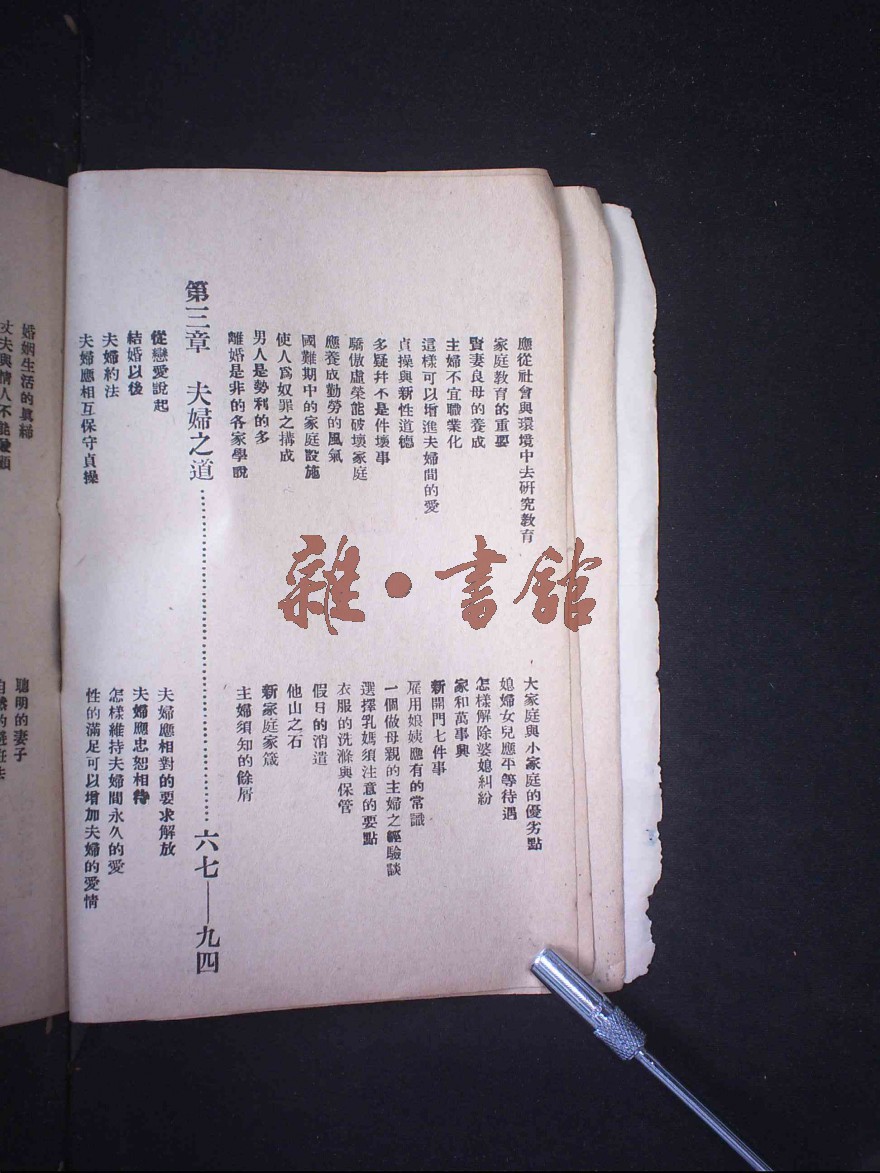 應從社會與環境中去研究教育
家庭教育的重要
賢妻良母的養成
主婦不宜職業化
這樣可以增進夫婦間的愛
貞操與新性道德
多疑幷不是件壞事
驕傲虛榮能破壞家庭
應養成勤勞的風氣
國難期中的家庭設施
使人爲奴罪之搆成
男人是勢利的多
離婚是非的各家學說
大家庭與小家庭的優劣點
媳婦女兒應平等待遇
怎樣解除婆媳糾紛
家和萬事興
新開門七件事
雇用娘姨應有的常識
一個做母親的主婦之經驗談
選擇乳媽須注意的要點
衣服的洗滌與保管
假日的消遣
他山之石
新家庭家箴
主婦須知的餘屑
第三章 夫婦之道……六七——九四
從戀愛說起
結婚以後
夫婦約法
夫婦應相互保守貞操
夫婦應相對的要求解放
夫婦應忠恕相待
怎樣維持夫婦間永久的愛
性的滿足可以增加夫婦的愛情
婚姻生活的眞締
丈夫與情人不能兼顧
聰明的妻子
雜·書館